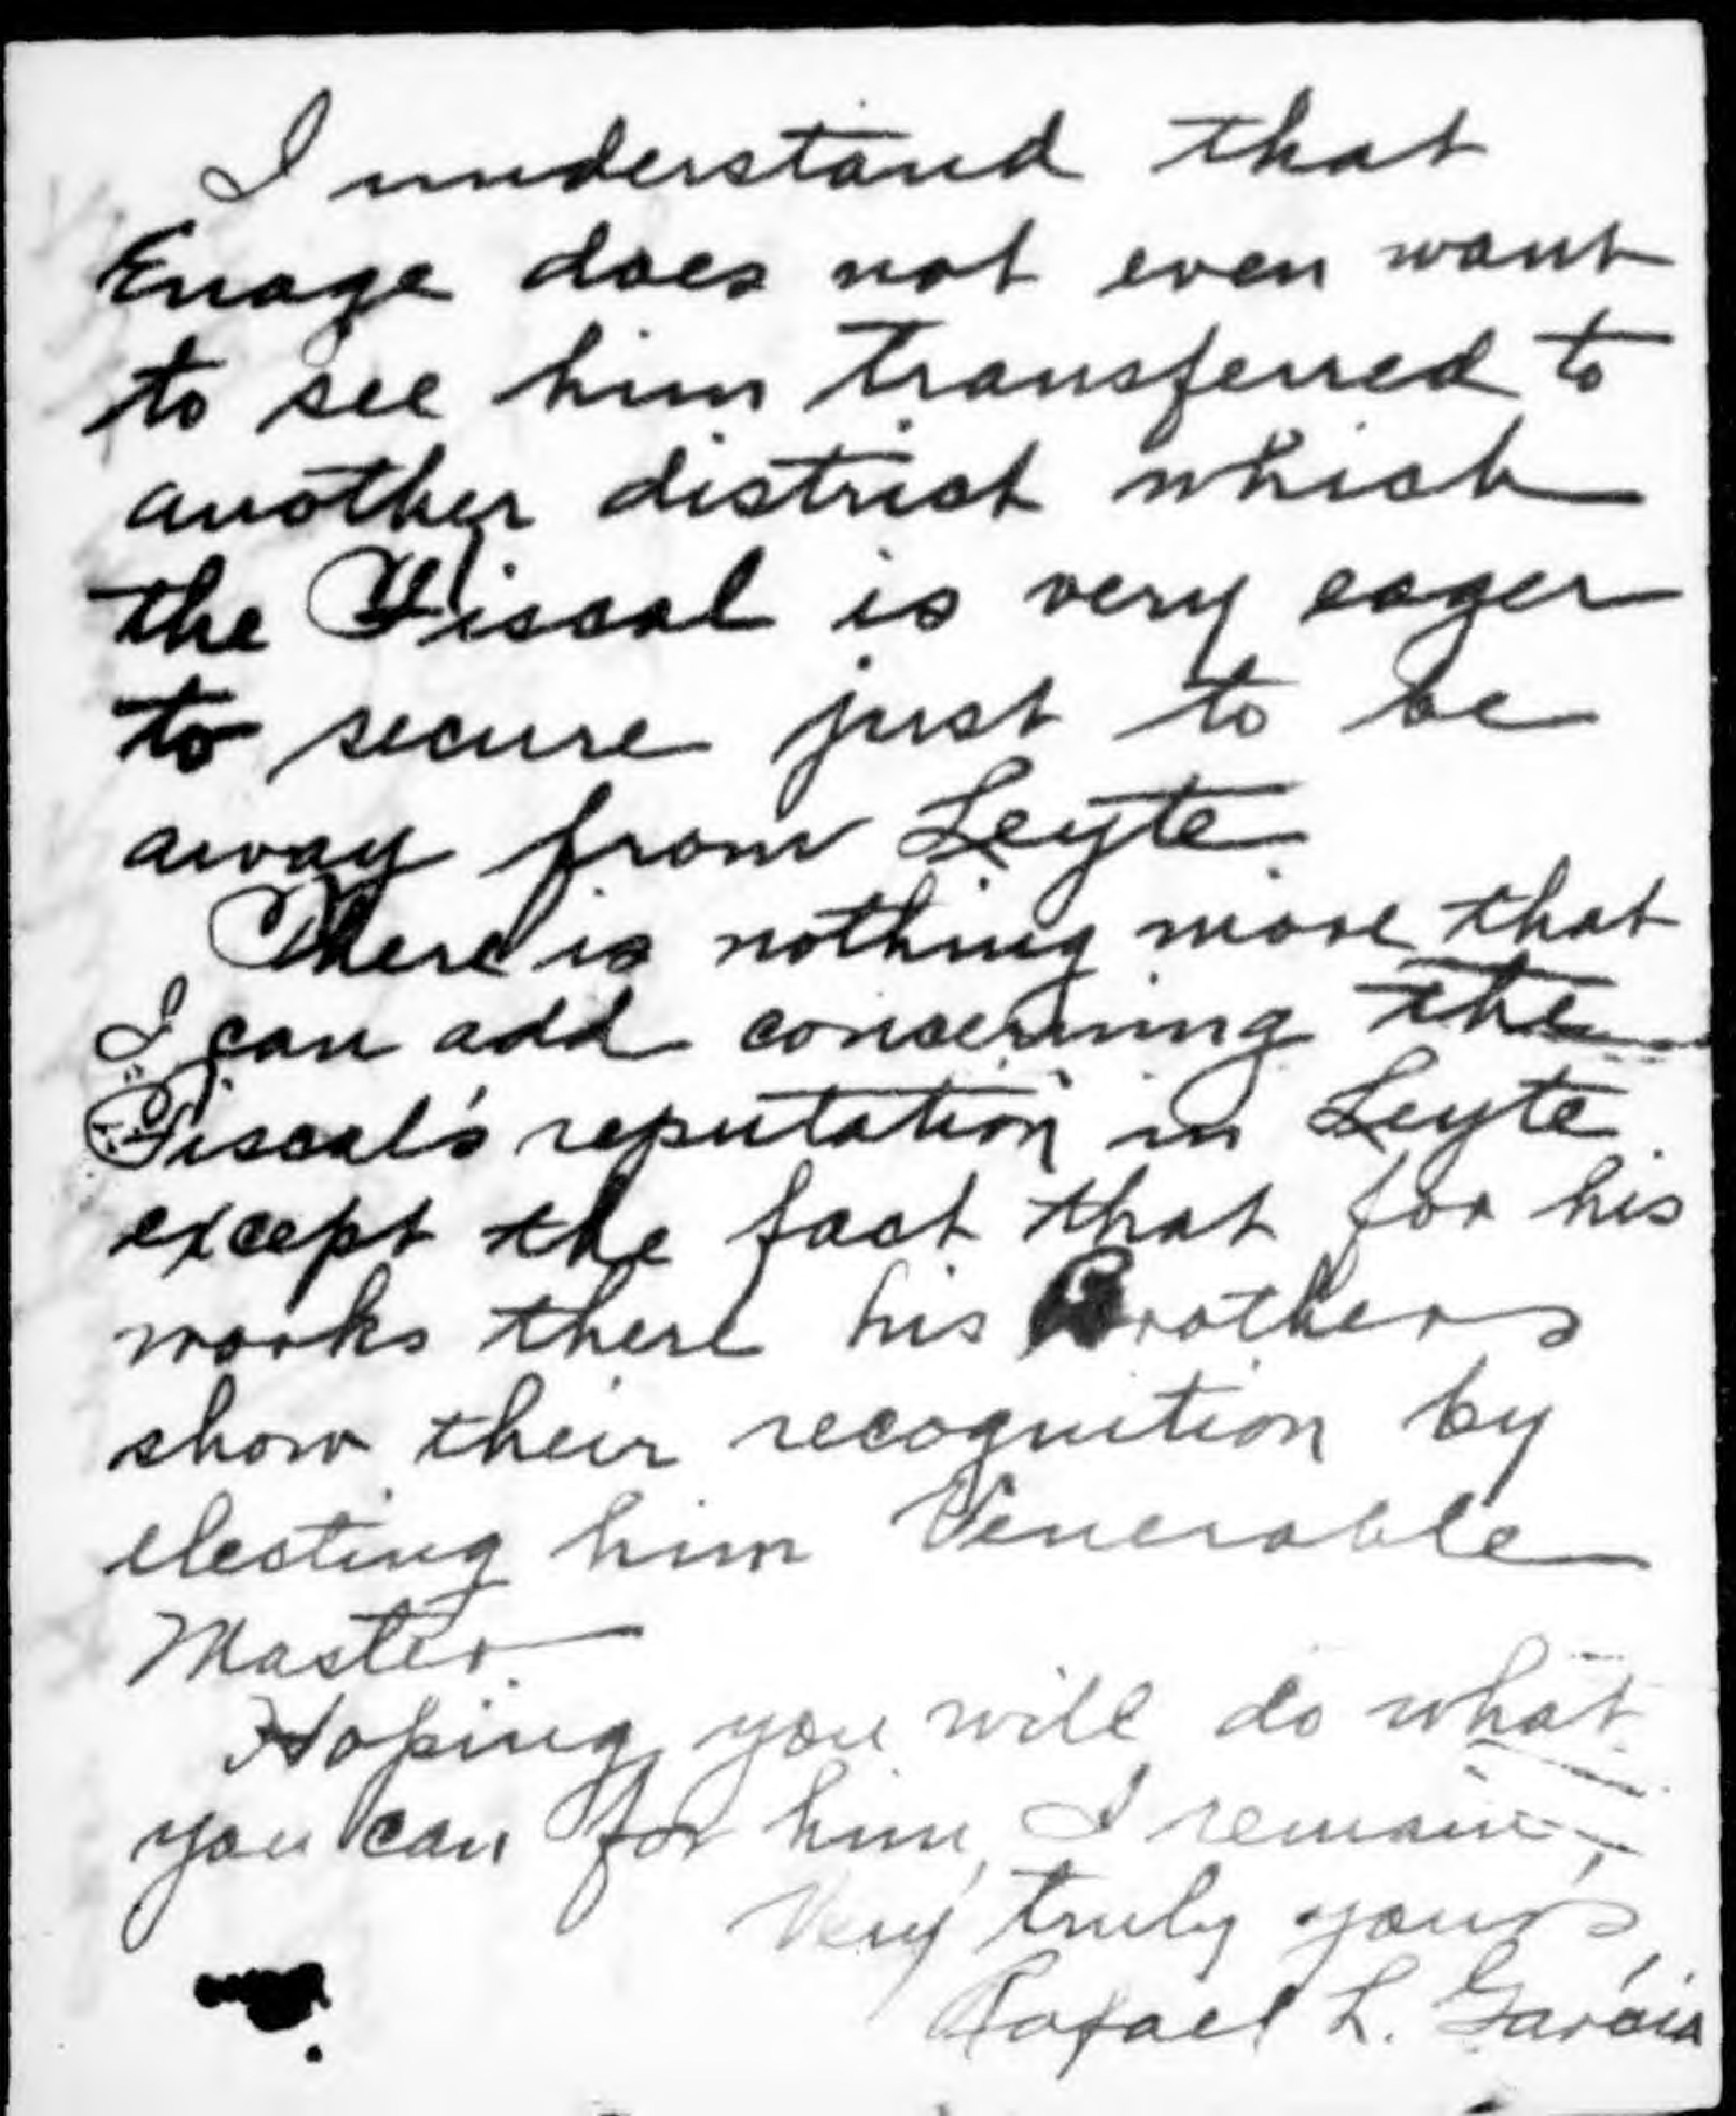 I understand that
Enage does not even want
to see him transferred to
another district which
the Fiscal is very eager
to secure just to be
away from Leyte
There is nothing more that
I can add concerning the
Fiscal's reputation in Leyte
except the fact that for his
works there his Brothers
show their recognition by
electing him Venerable
Master.
Hoping you will do what
you can for him, I remain,
Very truly yours,
Rafael L. Garcia